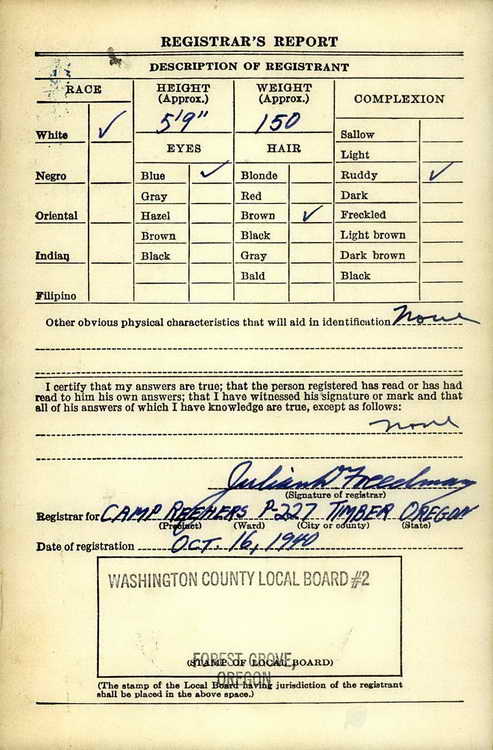 REGISTRAR'S REPORT
DESCRIPTION OF REGISTRANT
RACE
HEIGHT
(Approx.)
WEIGHT
(Approx.)
COMPLEXION
5'9"
150
White ✓
Sallow
EYES
HAIR
Light
Negro
Blue ✓
Blonde
Ruddy ✓
Gray
Red
Dark
Oriental
Hazel
Brown ✓
Freckled
Brown
Black
Light brown
Indian
Black
Gray
Dark brown
Bald
Black
Filipino
Other obvious physical characteristics that will aid in identification None
I certify that my answers are true; that the person registered has read or has had
read to him his own answers; that I have witnessed his signature or mark and that
all of his answers of which I have knowledge are true, except as follows:
None
Julian W Freedman
(Signature of registrar)
Registrar for CAMP REEHERS P-227 TIMBER OREGON
(Precinct) (Ward) (City or county) (State)
Date of registration OCT. 16, 1940
WASHINGTON COUNTY LOCAL BOARD #2
FOREST GROVE,
(STAMP OF LOCAL BOARD)
OREGON
(The stamp of the Local Board having jurisdiction of the registrant
shall be placed in the above space.)